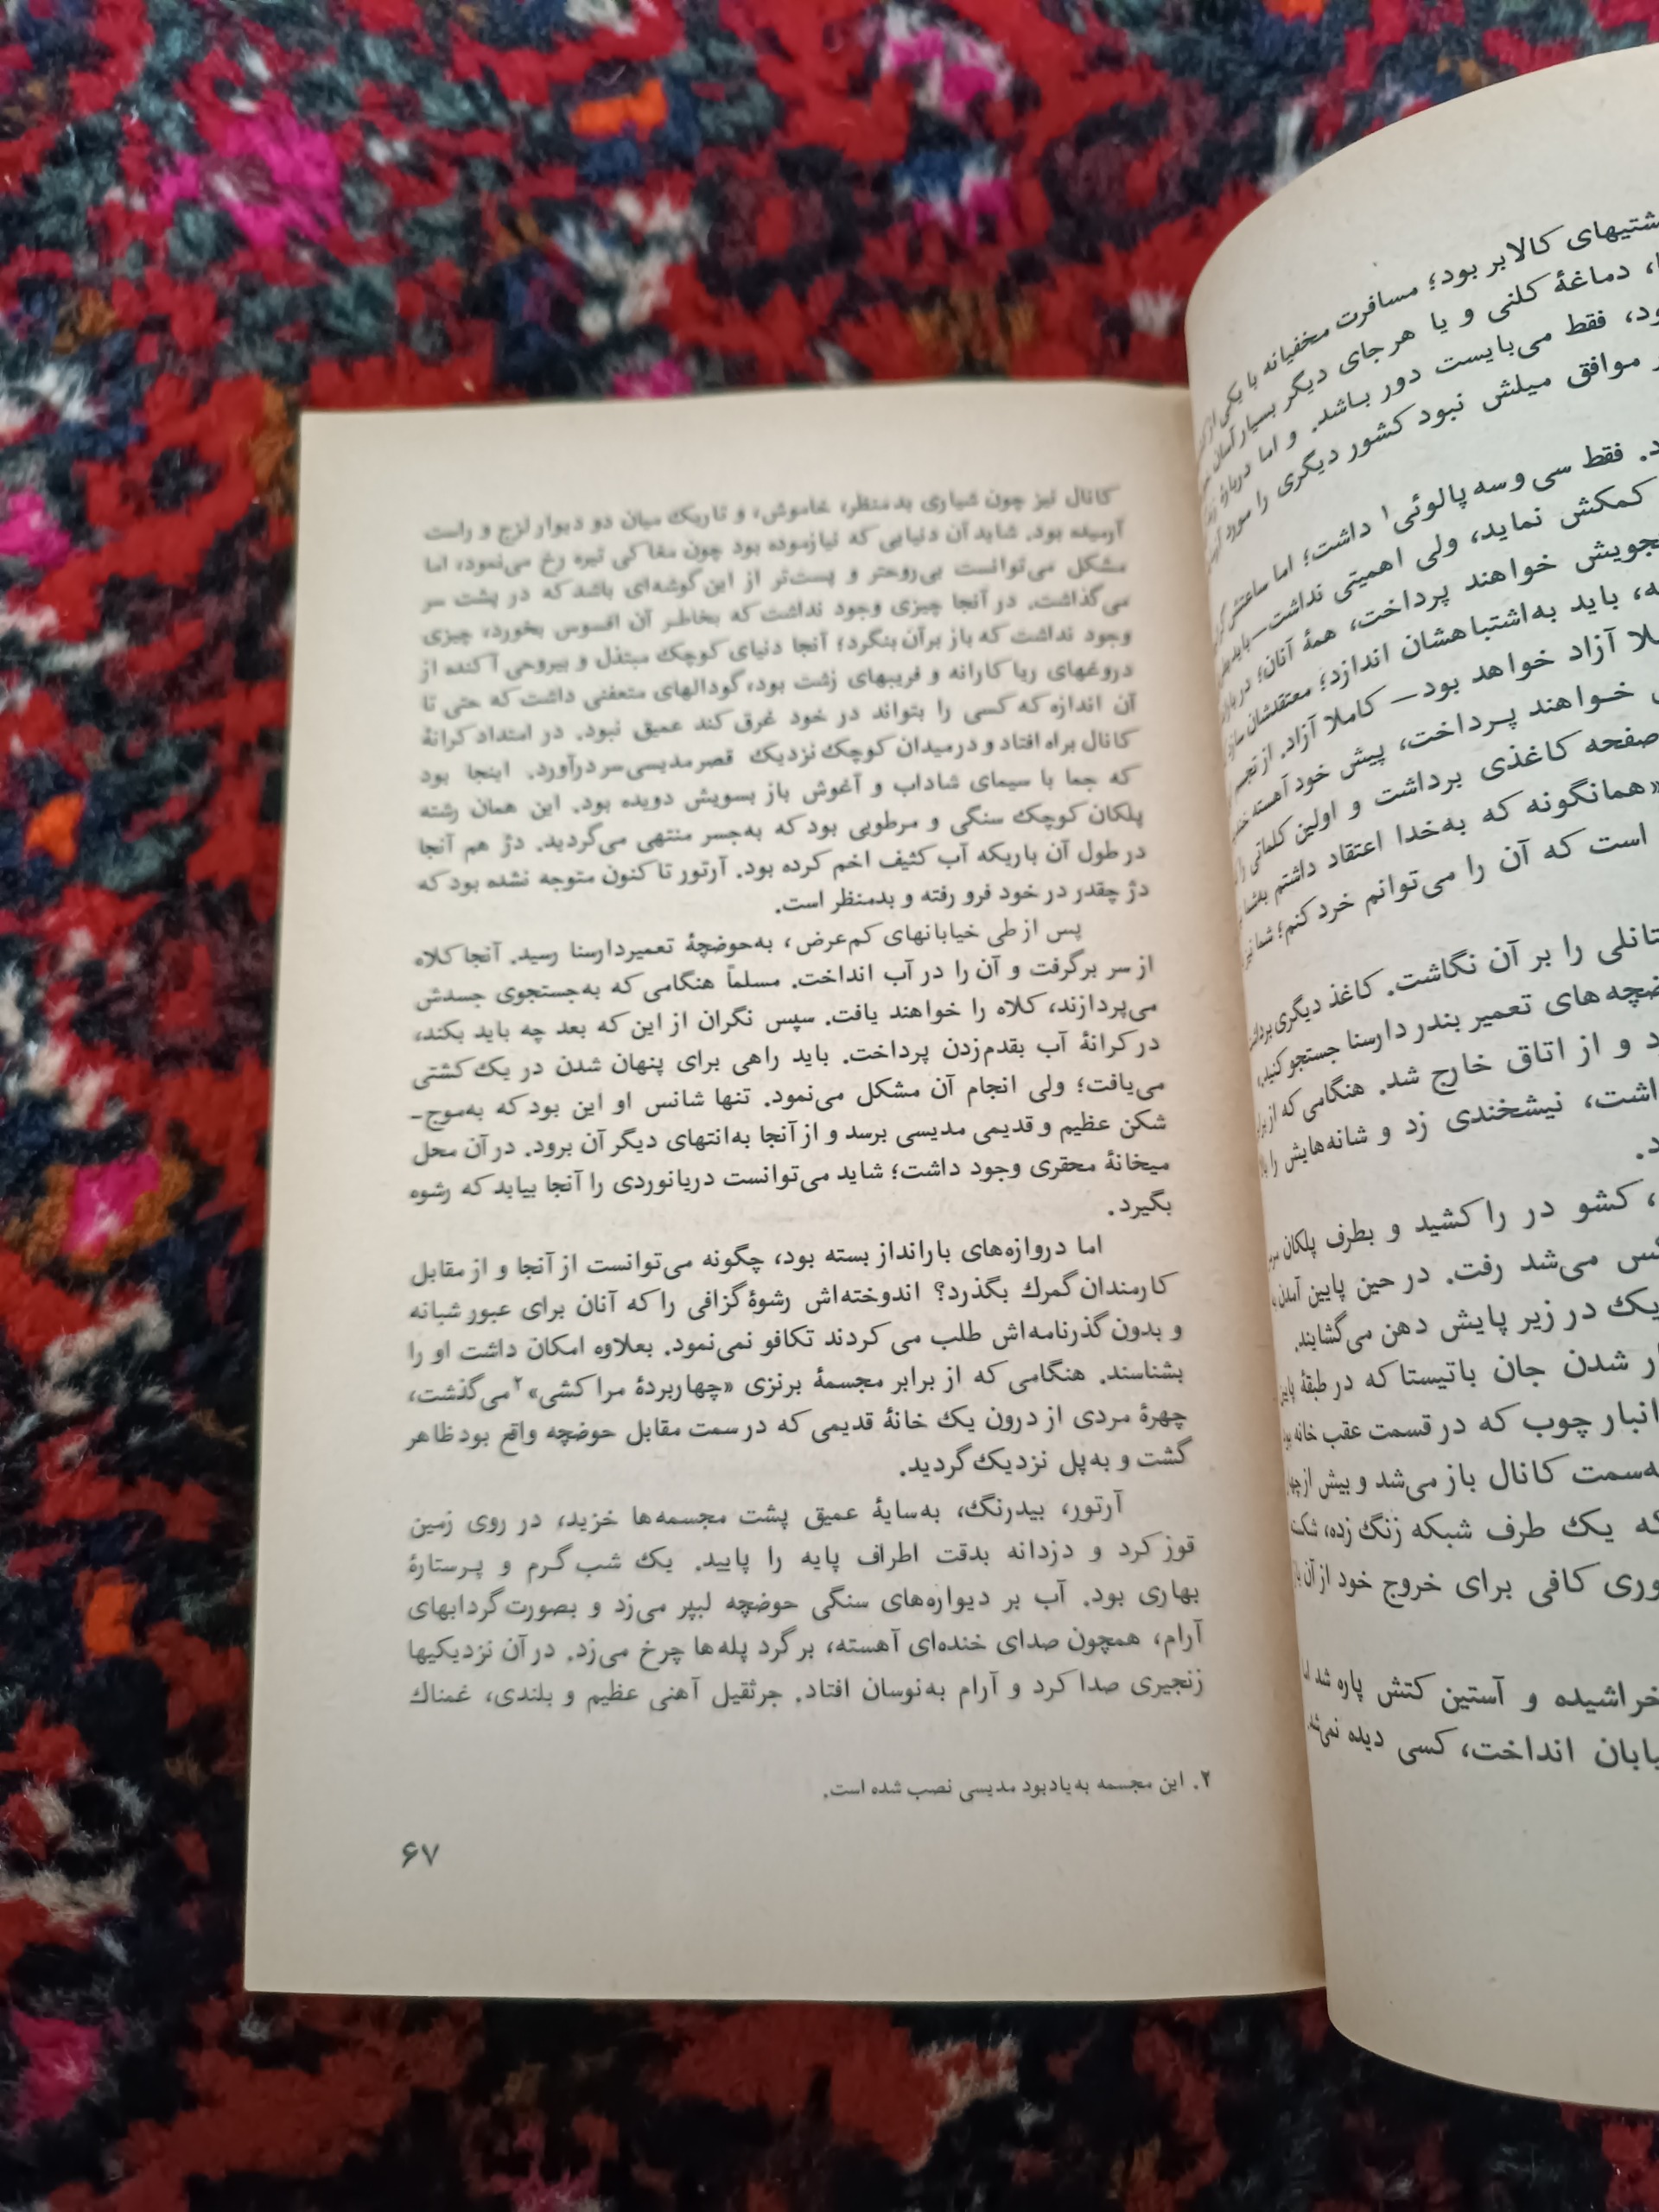 کانال نیز چون شیاری بدمنظر، خاموش، و تاریک میان دو دیوار لزج و راست
آرمیده بود. شاید آن دنیایی که نیازموده بود چون مغاکی تیره رخ می‌نمود، اما
مشکل می‌توانست بی‌روحتر و پست‌تر از این گوشه‌ای باشد که در پشت سر
می‌گذاشت. در آنجا چیزی وجود نداشت که بخاطر آن افسوس بخورد، چیزی
وجود نداشت که باز برآن بنگرد؛ آنجا دنیای کوچک مبتذل و بیروحی آکنده از
دروغهای ریاکارانه و فریبهای زشت بود، گودالهای متعفنی داشت که حتی تا
آن اندازه که کسی را بتواند در خود غرق کند عمیق نبود. در امتداد کرانهٔ
کانال براه افتاد و درمیدان کوچک نزدیک قصر مدیسی سر درآورد. اینجا بود
که جما با سیمای شاداب و آغوش باز بسویش دویده بود. این همان رشته
پلکان کوچک سنگی و مرطوبی بود که به‌جسر منتهی می‌گردید. دژ هم آنجا
در طول آن باریکه آب کثیف اخم کرده بود. آرتور تاکنون متوجه نشده بود که
دژ چقدر در خود فرو رفته و بدمنظر است.
پس از طی خیابانهای کم‌عرض، به‌حوضچهٔ تعمیر دارسنا رسید. آنجا کلاه
از سر برگرفت و آن را در آب انداخت. مسلماً هنگامی که به‌جستجوی جسدش
می‌پردازند، کلاه را خواهند یافت. سپس نگران از این که بعد چه باید بکند،
در کرانهٔ آب بقدم‌زدن پرداخت. باید راهی برای پنهان شدن در یک کشتی
می‌یافت؛ ولی انجام آن مشکل می‌نمود. تنها شانس او این بود که به‌موج-
شکن عظیم و قدیمی مدیسی برسد و از آنجا به‌انتهای دیگر آن برود. در آن محل
میخانهٔ محقری وجود داشت؛ شاید می‌توانست دریانوردی را آنجا بیابد که رشوه
بگیرد.
اما دروازه‌های بارانداز بسته بود، چگونه می‌توانست از آنجا و از مقابل
کارمندان گمرک بگذرد؟ اندوخته‌اش رشوهٔ گزافی را که آنان برای عبور شبانه
و بدون گذرنامه‌اش طلب می‌کردند تکافو نمی‌نمود. بعلاوه امکان داشت او را
بشناسند. هنگامی که از برابر مجسمهٔ برنزی «چهاربردهٔ مراکشی»۲ می‌گذشت،
چهرهٔ مردی از درون یک خانهٔ قدیمی که در سمت مقابل حوضچه واقع بود ظاهر
گشت و به‌پل نزدیک گردید.
آرتور، بیدرنگ، به‌سایهٔ عمیق پشت مجسمه‌ها خزید، در روی زمین
قوز کرد و دزدانه بدقت اطراف پایه را پایید. یک شب گرم و پرستارهٔ
بهاری بود. آب بر دیواره‌های سنگی حوضچه لبپر می‌زد و بصورت گردابهای
آرام، همچون صدای خنده‌ای آهسته، بر گرد پله‌ها چرخ می‌زد. در آن نزدیکیها
زنجیری صدا کرد و آرام به‌نوسان افتاد. جرثقیل آهنی عظیم و بلندی، غمناک
۲. این مجسمه به‌یادبود مدیسی نصب شده است.
۶۷
کالابر بود؛ مسافرت مخفیانه با یکی از
دماغهٔ کلنی و یا هرجای دیگر بسیار آسان
فقط می‌بایست دور باشد. و اما دربارهٔ
موافق میلش نبود کشور دیگری را مورد
فقط سی و سه پالوئی۱ داشت؛ اما ساعتش
کمکش نماید، ولی اهمیتی نداشت—باید
خواهند پرداخت، همهٔ آنان؛
باید به‌اشتباهشان اندازد؛ معتقدشان
آزاد خواهد بود— کاملا آزاد. از
خواهند پرداخت، پیش خود آهسته
صفحه کاغذی برداشت و اولین کلماتی را
«همانگونه که به‌خدا اعتقاد داشتم بشما
است که آن را می‌توانم خرد کنم؛ شما نیز
را بر آن نگاشت. کاغذ دیگری
های تعمیر بندر دارسنا جستجو کنید.»
و از اتاق خارج شد. هنگامی که از
نیشخندی زد و شانه‌هایش را بالا
کشو در را کشید و بطرف پلکان
می‌شد رفت. در حین پایین آمدن
در زیر پایش دهن می‌گشایند.
شدن جان باتیستا که در طبقهٔ
انبار چوب که در قسمت عقب خانه
کانال باز می‌شد و بیش از
یک طرف شبکه زنگ زده،
کافی برای خروج خود از آن
خراشیده و آستین کتش پاره شد
انداخت، کسی دیده